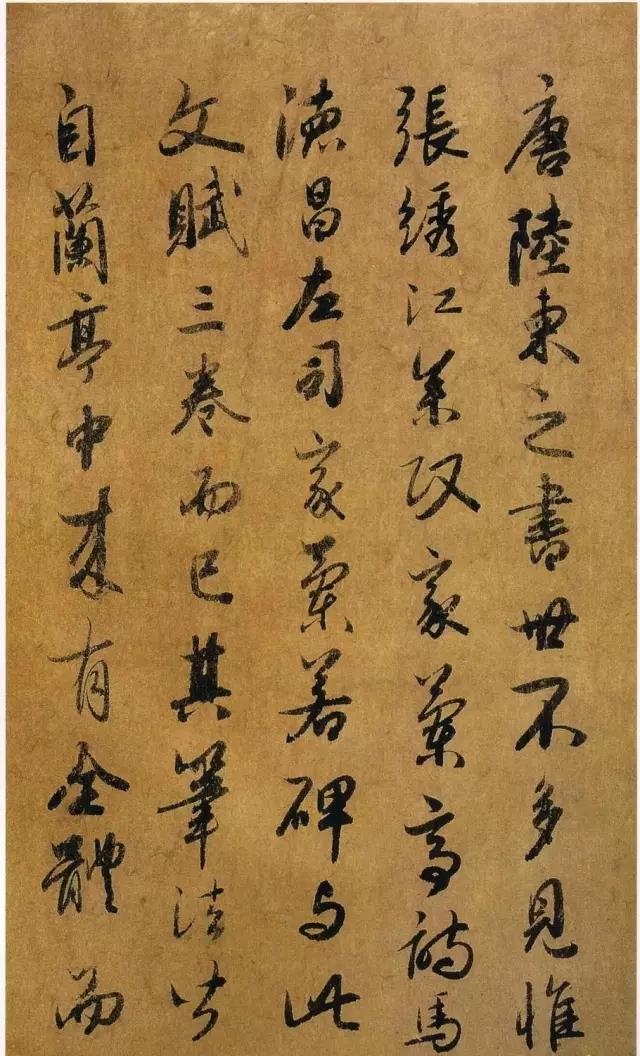 唐陸柬之書世不多見惟
張綉江叅政家蘭亭詩馬
德昌左司家蘭若碑与此
文賦三卷而已其筆法皆
自蘭亭中來有全體而